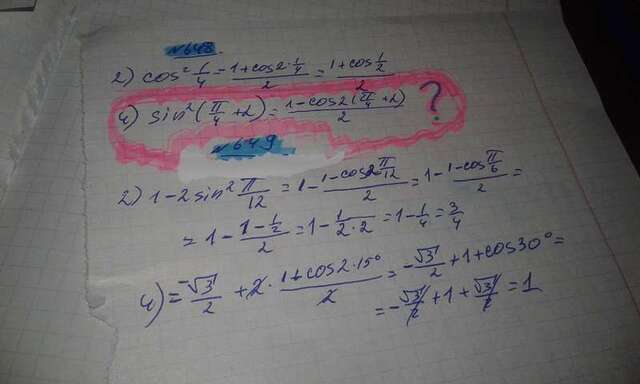 №648.
2) cos² 1/4 = (1+cos2·1/4)/2 = (1+cos 1/2)/2
4) sin²(π/4 + 2) = (1-cos2(π/4 + 2))/2 ?
№649
2) 1-2sin² π/12 = 1- (1-cos2 π/12)/2 = 1- (1-cos π/6)/2 =
= 1- (1- 1/2)/2 = 1- 1/(2·2) = 1- 1/4 = 3/4
4) = -√3/2 + 2· (1+cos2·15°)/2 = -√3/2 + 1 + cos30° =
= -√3/2 + 1 + √3/2 = 1